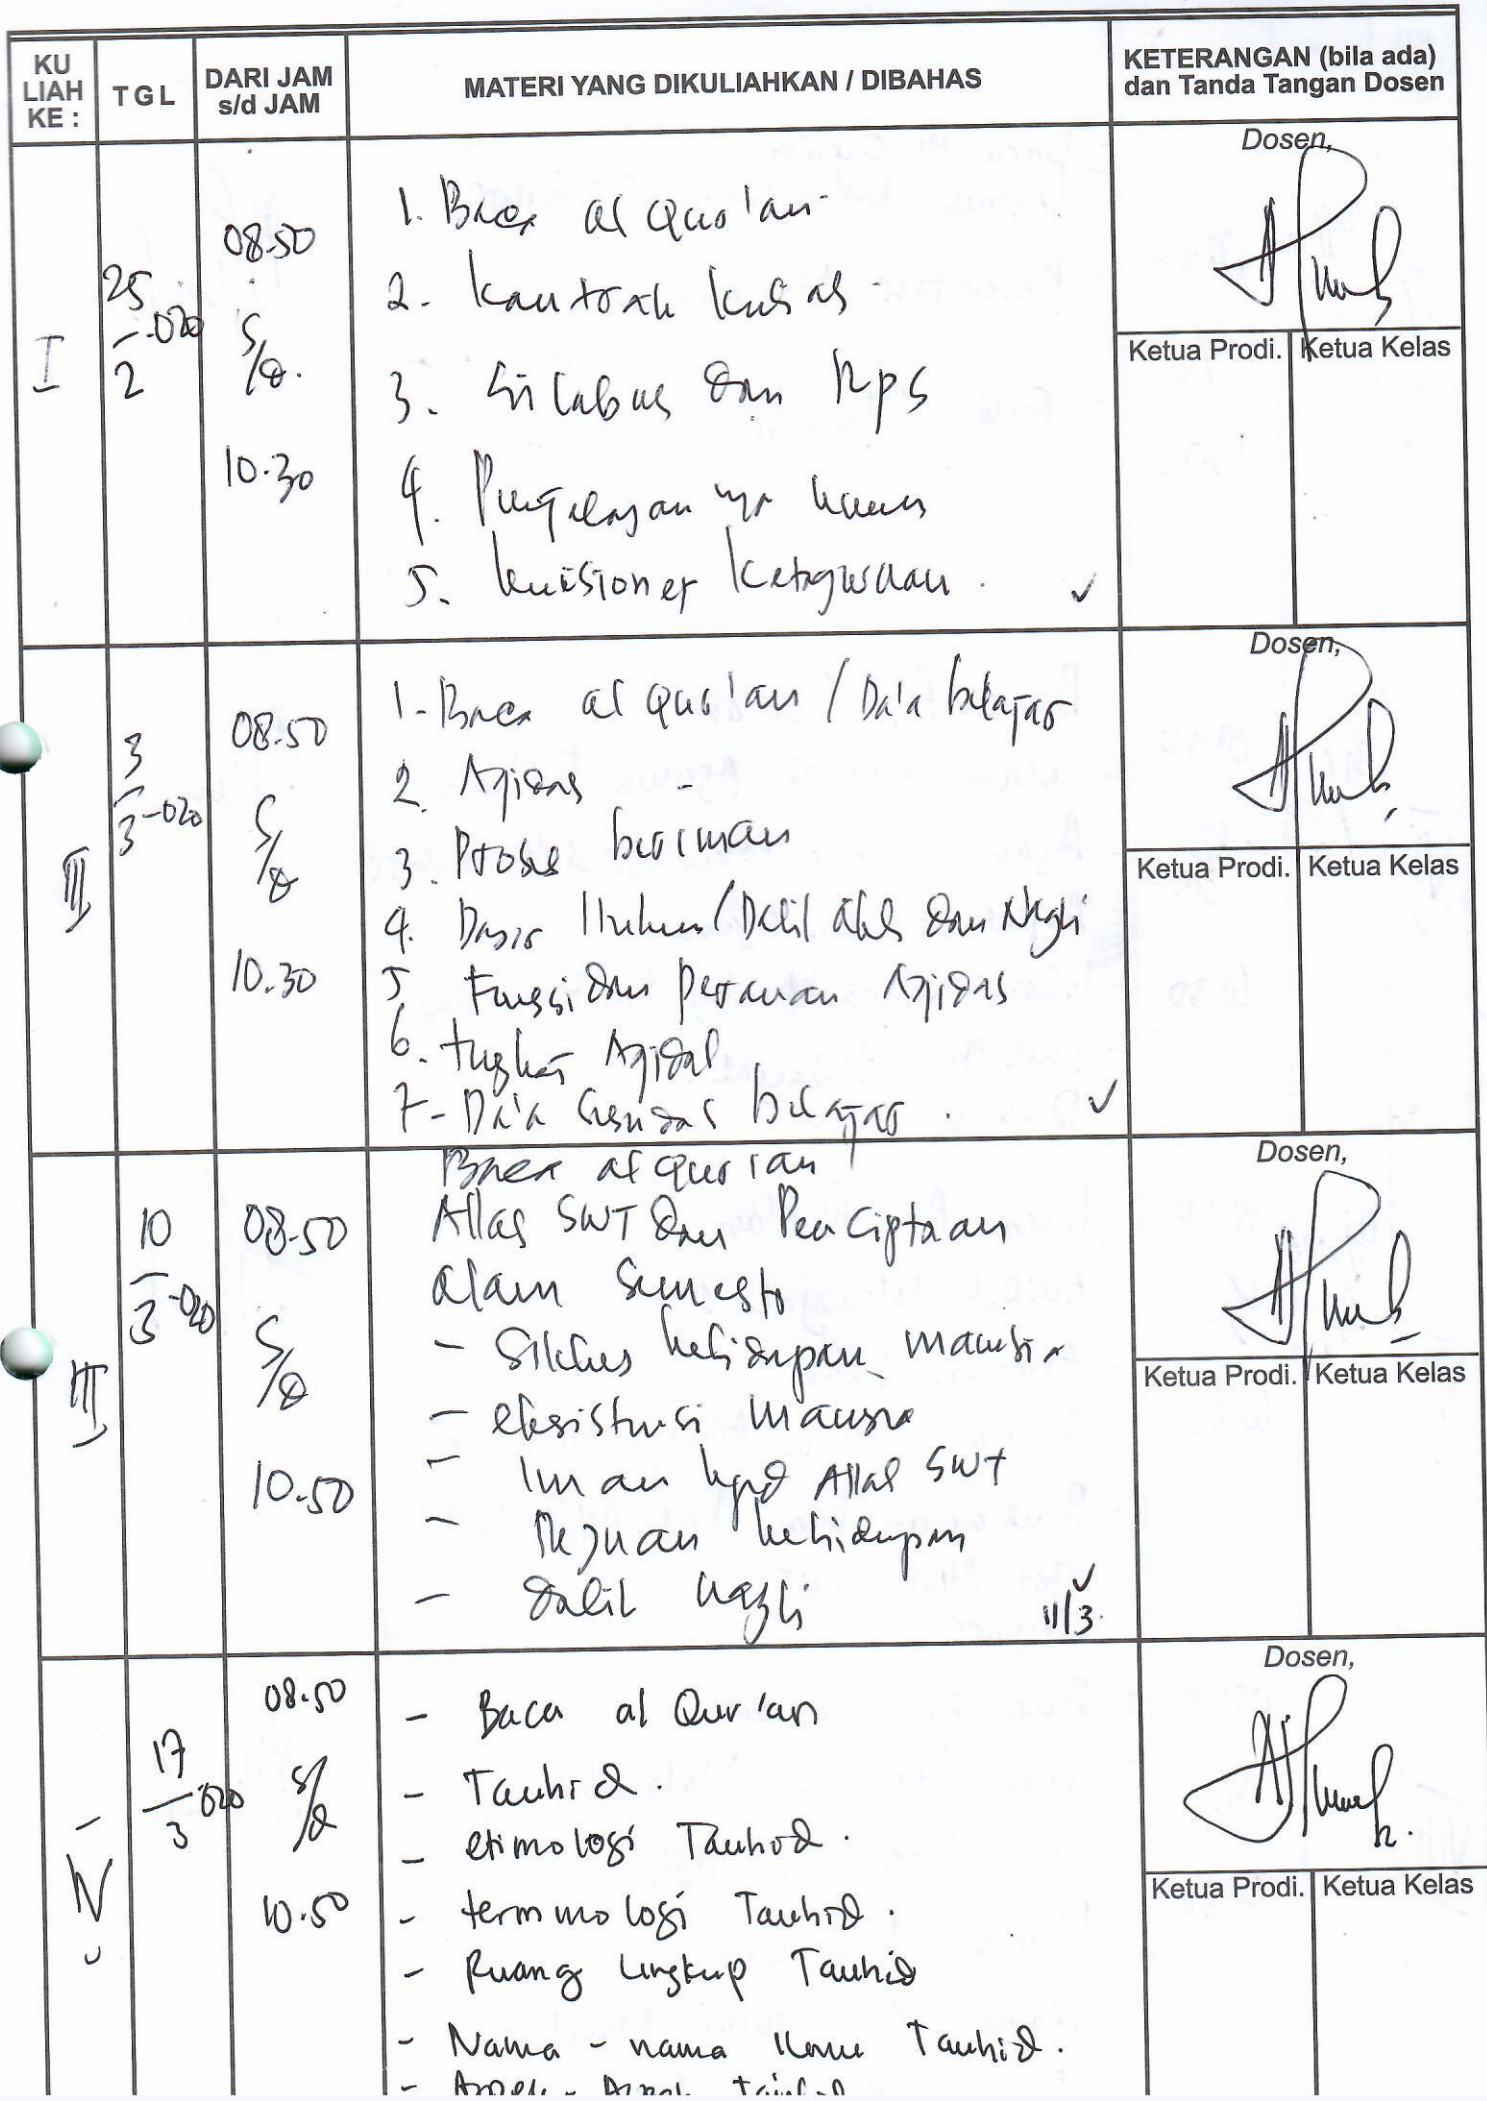 KU LIAH KE :
TGL
DARI JAM s/d JAM
MATERI YANG DIKULIAHKAN / DIBAHAS
KETERANGAN (bila ada) dan Tanda Tangan Dosen
I
25/2-020
08.50
s/d.
10.30
1. Baca al Qur'an
2. Kontrak Kuliah
3. Silabus dan Rps
4. Penjelasan
5. Kuisioner
Dosen,
Ketua Prodi.
Ketua Kelas
III
3/3-020
08.50
s/d
10.30
1. Baca al Qur'an / Do'a belajar
2. Aqidah
3. Proses beriman
4. Dasar Hukum / Dalil Akli dan Naqli
5 Fungsi dan Peranan Aqidah
6. tingkat Aqidah
7. Do'a belajar.
Dosen,
Ketua Prodi.
Ketua Kelas
III
10/3-020
08.50
s/d
10.50
Baca al qur'an
Allah SWT dan Penciptaan
alam semesta
- Siklus kehidupan manusia
- eksistensi manusia
- Iman kpd Allah SWT
- Tujuan kehidupan
- dalil naqli
11/3.
Dosen,
Ketua Prodi.
Ketua Kelas
IV
17/3 020
08.50
s/d
10.50
- Baca al Qur'an
- Tauhid.
- etimologi Tauhid.
- terminologi Tauhid.
- Ruang lingkup Tauhid
- Nama - nama Ilmu Tauhid.
Dosen,
Ketua Prodi.
Ketua Kelas